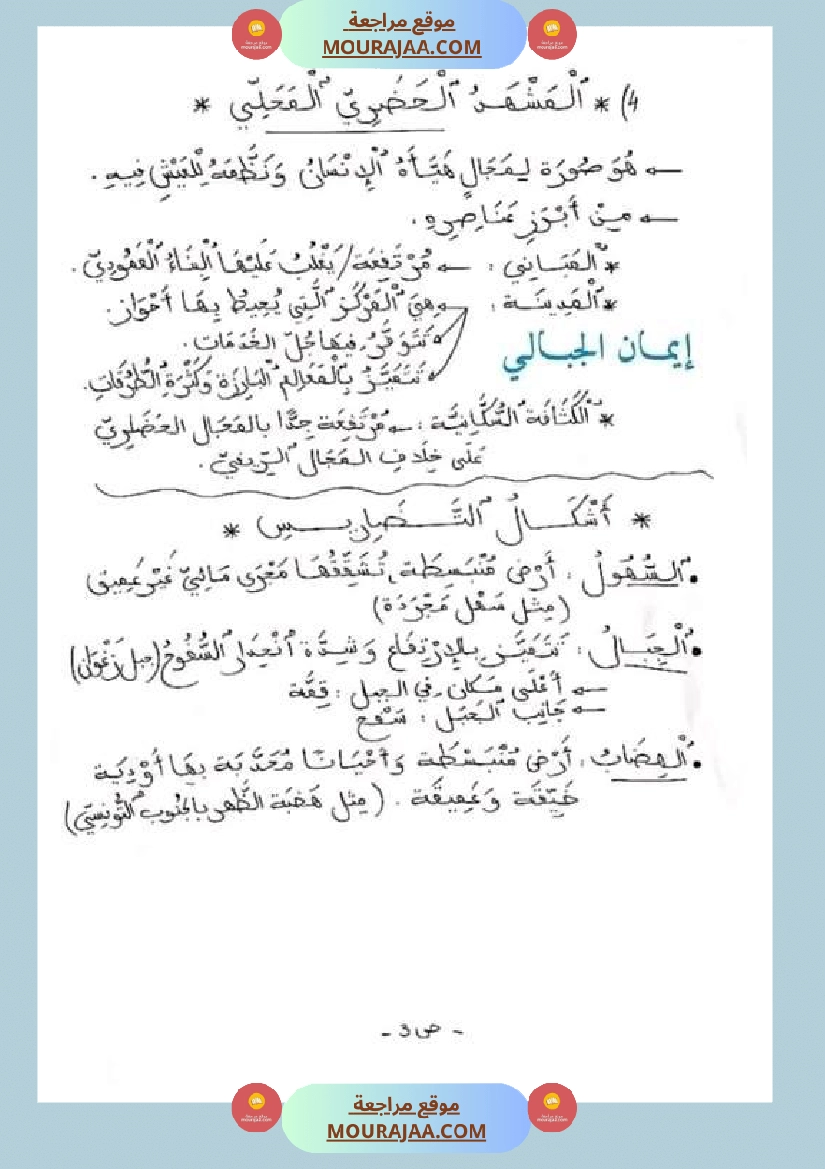 موقع مراجعة
MOURAJAA.COM
4) * اَلْمَشْهَدُ اَلْحَضَرِيّ اَلْمَحَلِّي *
← هُوَ صُورَة لِمَجَالٍ هَيَّأَهُ اَلْإِنْسَانُ وَنَظَّمَهُ لِلْعَيْشِ فِيهِ.
← مِنْ أَبْرَزِ عَنَاصِرِهِ.
* اَلْمَبَانِي : ← مُرْتَفِعَة/ يَغْلُبُ عَلَيْهَا اَلْبِنَاءُ اَلْعَمُودِيّ.
* اَلْمَدِينَة : ← هِيَ اَلْمَرْكَز اَلَّتِي يُحِيطُ بِهَا أَحْوَاز.
تَتَوَفَّرُ فِيهَا جُلّ الخَدَمَات.
إيمان الجبالي
تَتَمَيَّزُ بِالْمَعَالِمِ اَلْبَارِزَة وَكَثْرَةِ اَلطُّرُقَاتِ.
* اَلْكَثَافَة اَلسُّكَّانِيَّة : ← مُرْتَفِعَة جِدًّا بالمَجَال الحَضَرِيّ
عَلَى خِلَافِ المَجَال اَلرِّيفِيّ.
* أَشْكَالُ اَلتَّضَارِيسِ *
• اَلسُّهُولُ : أَرْض مُنْبَسِطَة، تُشَقِّقُهَا مَجْرَى مَائِيّ غَيْر عَمِيق
(مِثل سَهْل مَجْرَدَة)
• اَلْجِبَالُ : تَتَمَيَّز بِالاِرْتِفَاعِ وَشِدَّة اَنْحِدَار اَلسُّفُوحِ (جبل زَغْوَان)
← أَعْلَى مَكَان فِي الجبل : قِمَّة
← جَانِب اَلجَبَل : سَفْح
• اَلْهِضَابُ : أَرْض مُنْبَسْطَة وَأَحْيَانًا مُحَدَّبَة بِهَا أَوْدِيَة
ضَيِّقَة وَعَمِيقَة. (مِثل هَضبَة الظَّهر بالجنُوب اَلتُّونِسِيّ)
- ص 3 -
موقع مراجعة
MOURAJAA.COM